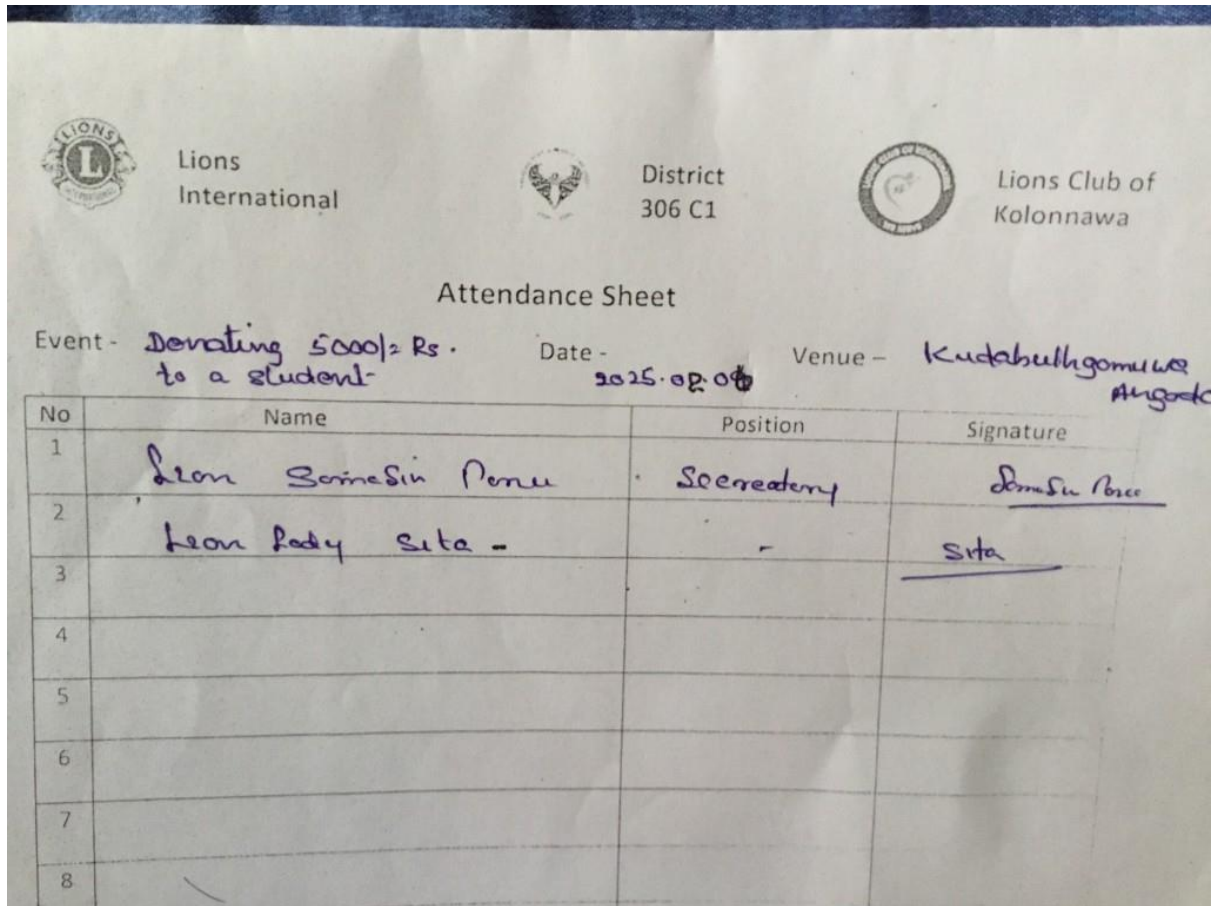 LIONS
L
INTERNATIONAL
Lions
International
District
306 C1
Lions Club of
Kolonnawa
Attendance Sheet
Event - Donating 5000/= Rs.
to a student
Date -
2025.02.0
Venue - Kudabuthgomuwa
Angoda
No Name Position Signature
1 Lion Secreatery
2 Leon Lady Sita - - Sita
3
4
5
6
7
8